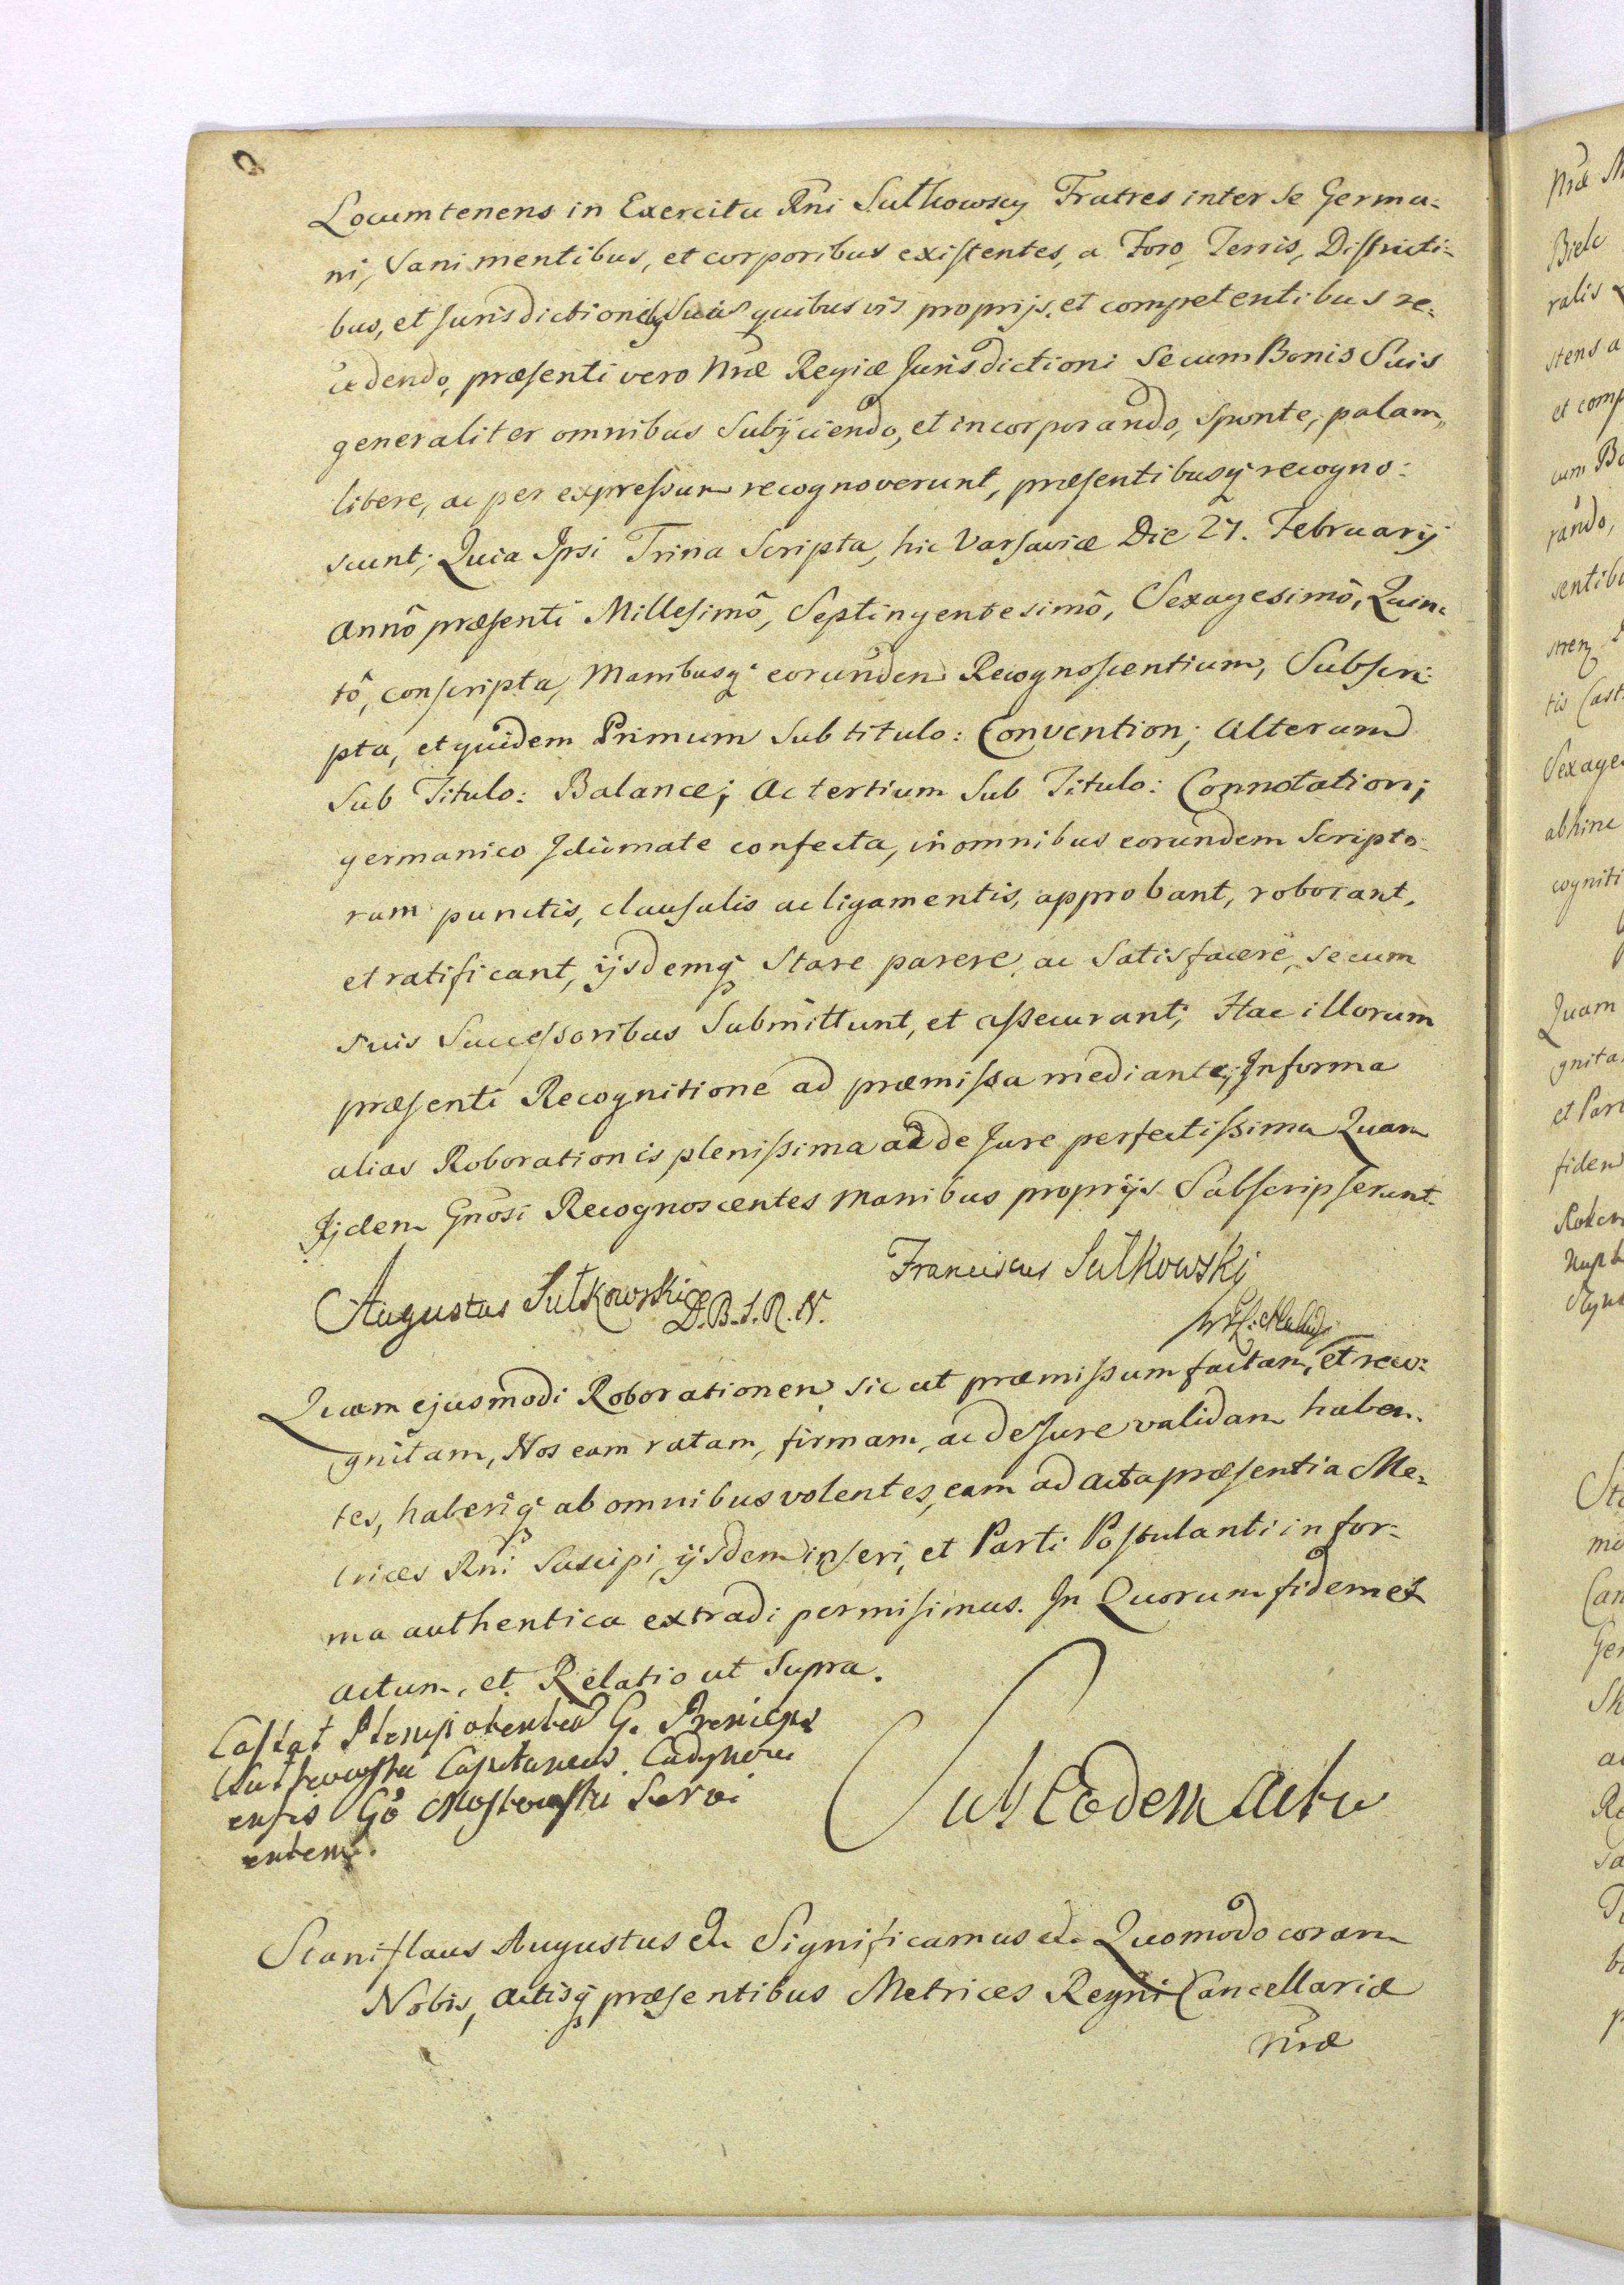 Locumtenens in Exercitu Rni Sułkowscy Fratres inter Se Germa:
ni, Sani mentibus, et corporibus existentes, a Foro, Terris, Districti:
bus, et Jurisdictionibq Suis quibus vis proprijs, et competentibus re:
cedendo, præsenti vero Nræ Regiæ Jurisdictioni Se cum Bonis Suis
generaliter omnibus Subijciendo, et incorporando, Sponte, palam,
libere, ac per expressum recognoverunt, præsentibusq recogno:
scunt; Quia Ipsi Trina Scripta, hic Varsaviæ Die 27. Februarij
Annô præsenti Millesimô, Septingentesimô, Sexagesimô, Quin:
tô, conscripta, Manibusq eorundem Recognoscentium, Subscri:
pta, et quidem Primum Sub titulo: Convention; Alterum
Sub Titulo: Balance; Ac tertium Sub Titulo: Connotation;
germanico Idiomate confecta, in omnibus eorundem Scripto:
rum punctis, clausulis ac ligamentis, approbant, roborant,
et ratificant, ijsdemq Stare parere, ac Satisfacere, se cum
suis Successoribus Submittunt, et assecurant; Hac illorum
præsenti Recognitione ad præmissa mediante; In forma
alias Roborationis plenissima ac de Jure perfectissima Quam
Ijdem Gnosi Recognoscentes manibus proprijs Subscripserunt.
Augustus Sułkowski D.B.S.R.N.
Franciscus Sułkowski
Quam ejusmodi Roborationem sic ut præmissum factam, et reco:
gnitam, Nos eam ratam, firmam, ac de Jure validam haben:
tes, haberiq ab omnibus volentes, eam ad Acta præsentia Me:
trices Rni Suscipi, ijsdem inseri, et Parti Postulanti in for:
ma authentica extradi permisimus. In Quorum fidem et
actum, et Relatio ut Supra.
G.
Capitaneus
ensis Servi
entem.
Sub Eodem Actu
Stanislaus Augustus &c Significamus &c Quomodo coram
Nobis, Actisq præsentibus Metrices Regni Cancellariæ
Nræ
Nræ
Biele
ralis
stens a
et comp
cum Bo
rando,
sentibu
tis Cast
Sexages
abhinc
cogniti
Quam
gnita
et Part
fidem